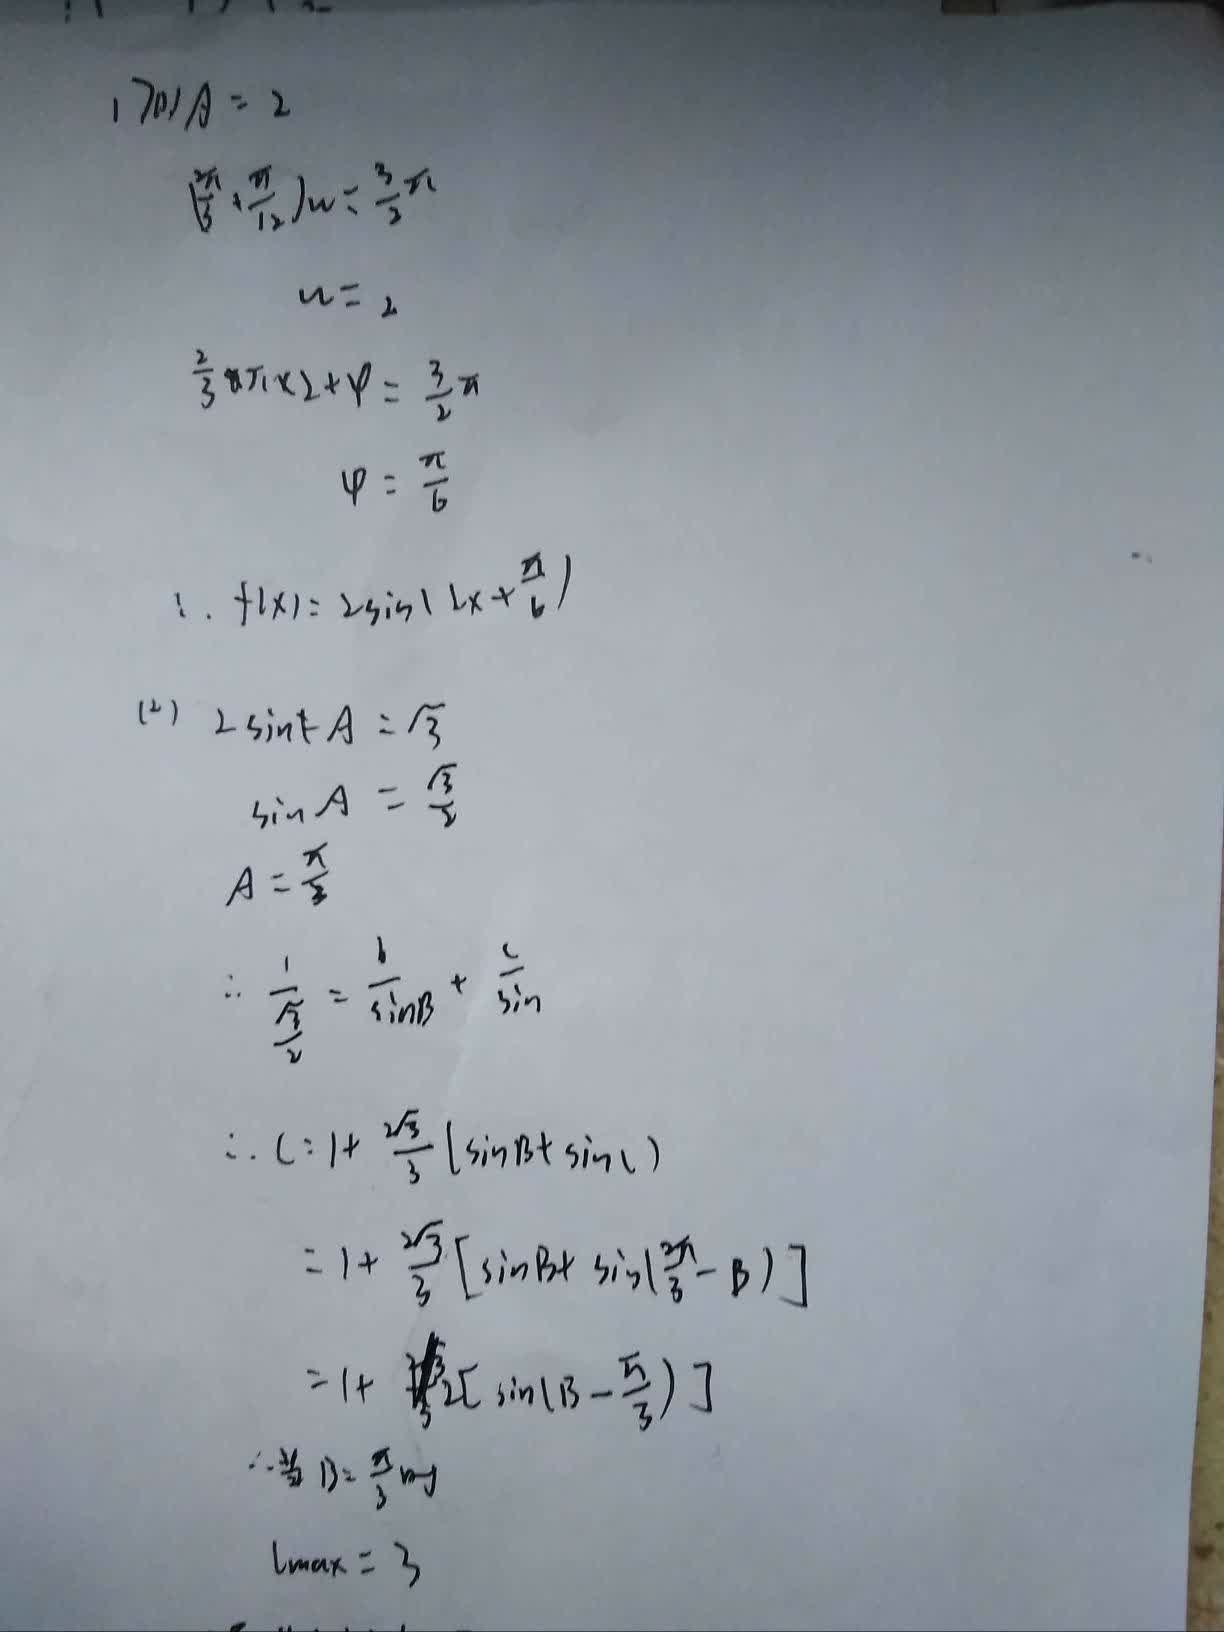 1) 则 A = 2
(2π/3 + π/12)w = 3/2 π
w = 2
2/3 π × 2 + φ = 3/2 π
φ = π/6
∴ f(x) = 2sin(2x + π/6)
(2) 2sin A = √3
sin A = √3/2
A = π/3
∴ 1/(√3/2) = b/sinB + c/sin
∴ C = 1 + 2√3/3 (sinB + sinC)
= 1 + 2√3/3 [sinB + sin(2π/3 - B)]
= 1 + 2[sin(B - π/3)]
∴ 当 B = π/3 时
Lmax = 3